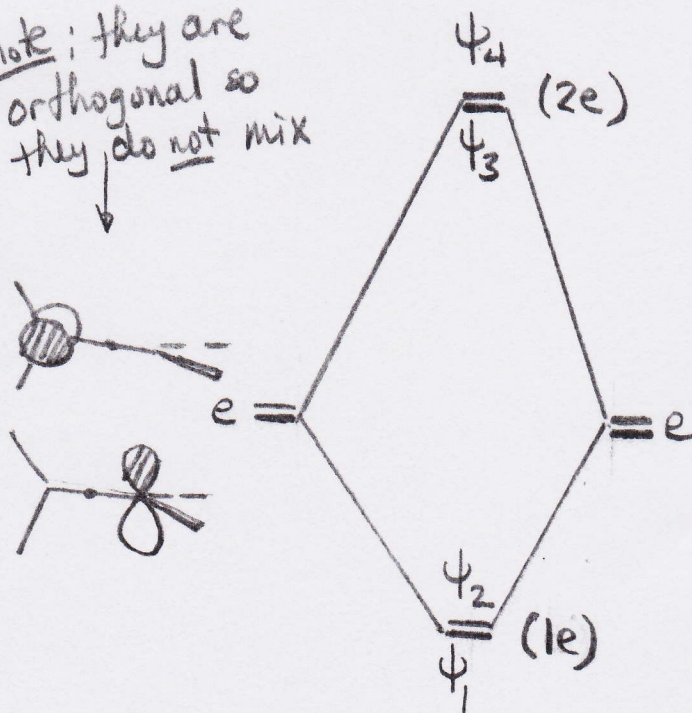 note: they are
orthogonal so
they do not mix
ψ4
(2e)
ψ3
e
e
ψ2
(1e)
ψ1